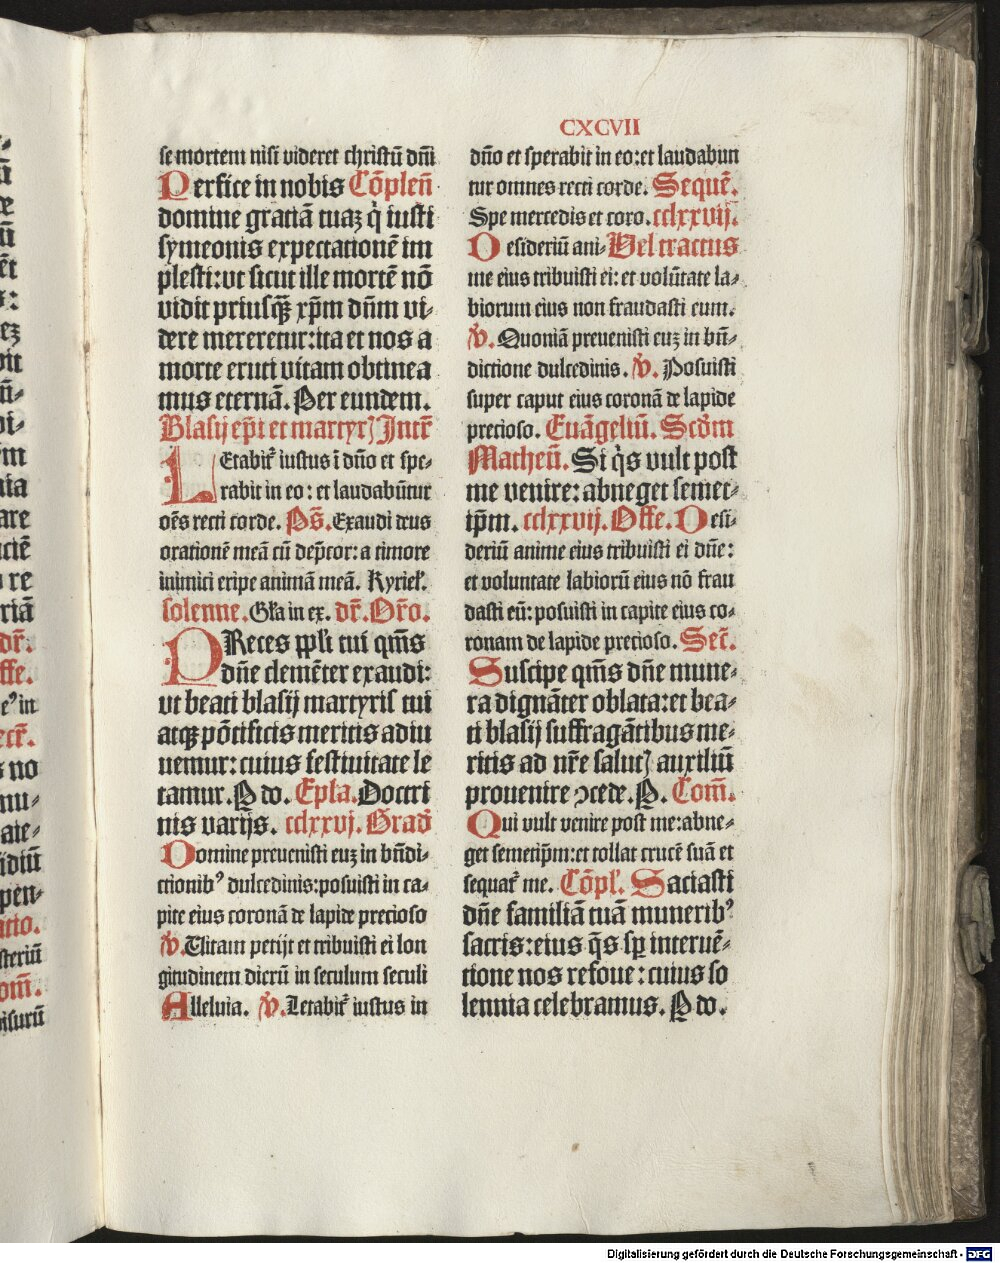 CXCVII
se mortem nisi videret christū dn̄i
Perfice in nobis Cōplen̄
domine gratiā tuaꝫ q̇ iusti
symeonis expectationē im
plesti:vt sicut ille mortē nō
vidit priusꝗ̄ xp̄m dn̄m vi-
dere mereretur:ita et nos a
morte eruti vitam obtinea
mus eternā. Per eundem.
Blasij ep̄i et martyrꝭ Intr̄
LEtabit᷑ iustus ī dn̄o et spe-
rabit in eo: et laudabūtur
oēs recti corde. Ps̄. Exaudi deus
orationē meā cū dep̄cor: a timore
inimici eripe animā meā. Kyriel᷑.
solenne. Gl̄a in ex. dr̄. Or̄o.
PReces ppl̄i tui qm̄s
dn̄e clemēter exaudi:
vt beati blasij martyris tui
atqꝫ pōtificis meritis adiu
uemur: cuius festiuitate le
tamur. P do. Epl̄a. Doctri
nis varijs. cclxxvj. Grad̄
Domine preuenisti euꝫ in bn̄di-
ctionibꝰ dulcedinis:posuisti in ca-
pite eius coronā de lapide precioso
v̄. Uitam petijt et tribuisti ei lon
gitudinem dierū in seculum seculi
Alleluia. v̄. Letabit᷑ iustus in
dn̄o et sperabit in eo:et laudabun
tur omnes recti corde. Sequē.
Spe mercedis et coro. cclxxvij.
Desideriū ani- Vel tractus
me eius tribuisti ei: et volūtate la-
biorum eius non fraudasti eum.
v̄. Quoniā preuenisti euꝫ in bn̄-
dictione dulcedinis. v̄. Posuisti
super caput eius coronā de lapide
precioso. Euāgeliū. Scd̄m
Matheū. Si q̇s vult post
me venire: abneget semet-
ip̄m. cclxxvij. Offe. Desi-
deriū anime eius tribuisti ei dn̄e:
et voluntate labiorū eius nō frau
dasti eū: posuisti in capite eius co-
ronam de lapide precioso. Secr̄.
Suscipe qm̄s dn̄e mune-
ra dignāter oblata: et bea-
ti blasij suffragātibus me-
ritis ad nr̄e salutꝭ auxiliū
prouenire ꝯcede. P. Com̄.
Qui vult venire post me:abne-
get semetip̄m:et tollat crucē suā et
sequat᷑ me. Cōpl᷑. Saciasti
dn̄e familiā tuā muneribꝰ
sacris:eius q̄s sp̱ interuē-
tione nos refoue: cuius so
lennia celebramus. P do.
Digitalisierung gefördert durch die Deutsche Forschungsgemeinschaft - DFG